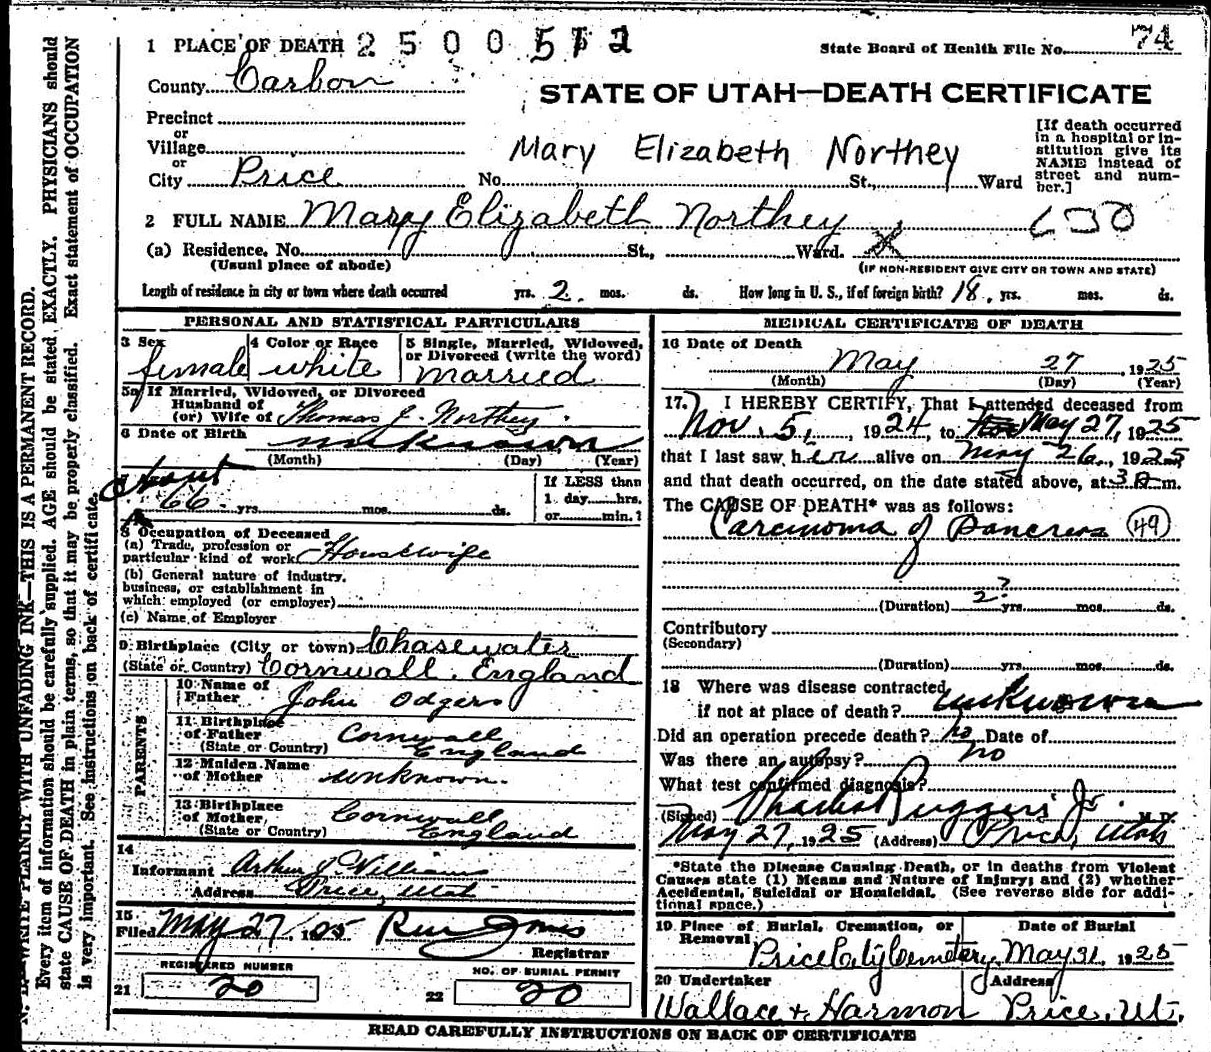 1 PLACE OF DEATH 2500512
State Board of Health File No. 74
County Carbon
STATE OF UTAH—DEATH CERTIFICATE
Precinct
or
Village
or
City Price No. St., Ward
Mary Elizabeth Northey
[If death occurred
in a hospital or in-
stitution give its
NAME instead of
street and num-
ber.]
2 FULL NAME Mary Elizabeth Northey
(a) Residence. No. St., Ward. X
(Usual place of abode)
(IF NON-RESIDENT GIVE CITY OR TOWN AND STATE)
Length of residence in city or town where death occurred yrs. 2 mos. ds. How long in U. S., if of foreign birth? 18 yrs. mos. ds.
PERSONAL AND STATISTICAL PARTICULARS
3 Sex female
4 Color or Race white
5 Single, Married, Widowed,
or Divorced (write the word)
Married
5a If Married, Widowed, or Divorced
Husband of
(or) Wife of Thomas J. Northey
6 Date of Birth unknown
(Month) (Day) (Year)
about
66 yrs. mos. ds.
If LESS than
1 day hrs.
or min.?
8 Occupation of Deceased
(a) Trade, profession or
particular kind of work Housewife
(b) General nature of industry,
business, or establishment in
which employed (or employer)
(c) Name of Employer
9 Birthplace (City or town) Chasewater
(State or Country) Cornwall, England
PARENTS
10 Name of
Father John Odgers
11 Birthplace
of Father
(State or Country) Cornwall
England
12 Maiden Name
of Mother unknown.
13 Birthplace
of Mother,
(State or Country) Cornwall
England
14
Informant Arthur J. Williams
Address Price, Utah
15
Filed May 27, 1925
Registrar
REGISTERED NUMBER
21 20
NO. OF BURIAL PERMIT
22 20
MEDICAL CERTIFICATE OF DEATH
16 Date of Death
May 27, 1925
(Month) (Day) (Year)
17. I HEREBY CERTIFY, That I attended deceased from
Nov. 5, 1924, to May 27, 1925
that I last saw her alive on May 26, 1925
and that death occurred, on the date stated above, at 3 A m.
The CAUSE OF DEATH* was as follows:
Carcinoma of Pancreas 49
(Duration) 2? yrs. mos. ds.
Contributory
(Secondary)
(Duration) yrs. mos. ds.
18 Where was disease contracted
if not at place of death? unknown
Did an operation precede death? No Date of
Was there an autopsy? No
What test confirmed diagnosis?
(Signed) Charles Ruggeri Jr. M.D.
May 27, 1925 (Address) Price, Utah
*State the Disease Causing Death, or in deaths from Violent
Causes state (1) Means and Nature of Injury; and (2) whether
Accidental, Suicidal or Homicidal. (See reverse side for addi-
tional space.)
19 Place of Burial, Cremation, or
Removal
Date of Burial
Price City Cemetery May 31, 1925
20 Undertaker Address
Wallace & Harmon Price, Ut.
READ CAREFULLY INSTRUCTIONS ON BACK OF CERTIFICATE
N. B.—WRITE PLAINLY WITH UNFADING INK—THIS IS A PERMANENT RECORD.
Every item of information should be carefully supplied. AGE should be stated EXACTLY. PHYSICIANS should
state CAUSE OF DEATH in plain terms, so that it may be properly classified. Exact statement of OCCUPATION
is very important. See instructions on back of certificate.